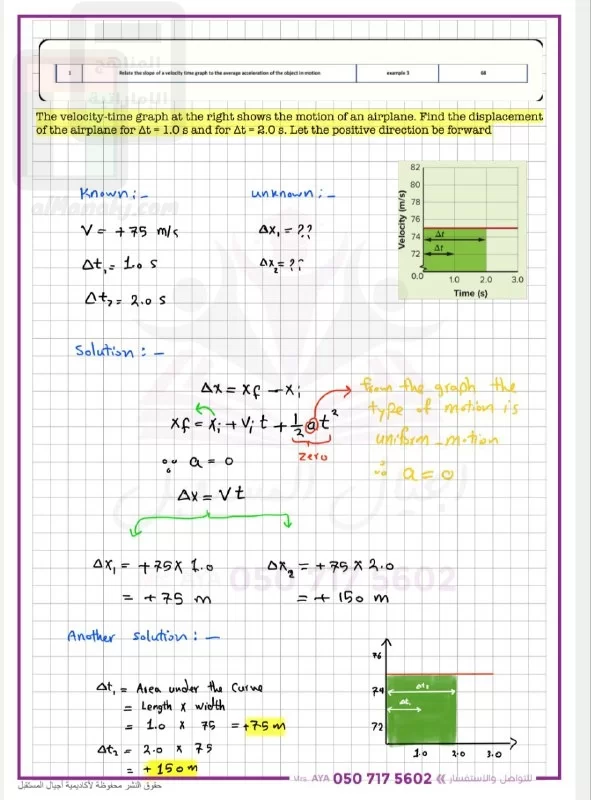 المناهج
الإماراتية
almanahj.com
1 Relate the slope of a velocity time graph to the average acceleration of the object in motion example 3 68
The velocity-time graph at the right shows the motion of an airplane. Find the displacement
of the airplane for Δt = 1.0 s and for Δt = 2.0 s. Let the positive direction be forward
Known :-
unknown :-
V = +75 m/s
Δx₁ = ??
Δt₁ = 1.0 s
Δx₂ = ??
Δt₂ = 2.0 s
Velocity (m/s)
82
80
78
76
74
72
0.0
1.0 2.0 3.0
Time (s)
Δt
Δt
Solution :-
Δx = xf - xi
xf = xi + Vi t + 1/2 a t²
zero
from the graph the
type of motion is
uniform-motion
∵ a = 0
∵ a = 0
Δx = Vt
Δx₁ = +75 x 1.0
= +75 m
Δx₂ = +75 x 2.0
= +150 m
050 717 5602
Another solution :-
Δt₁ = Area under the curve
= Length x width
= 1.0 x 75 = +75 m
Δt₂ = 2.0 x 75
= +150 m
76
74
72
Δt₂
Δt₁
1.0 2.0 3.0
حقوق النشر محفوظة لأكاديمية أجيال المستقبل
Mrs. AYA 050 717 5602 للتواصل والاستفسار